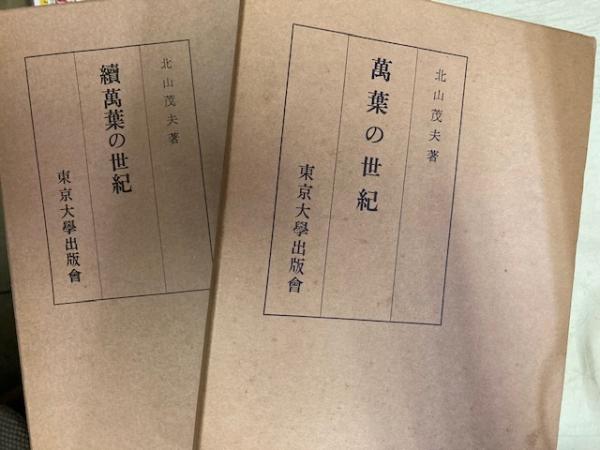 北山茂夫著
萬葉の世紀
東京大學出版會
北山茂夫著
續萬葉の世紀
東京大學出版會